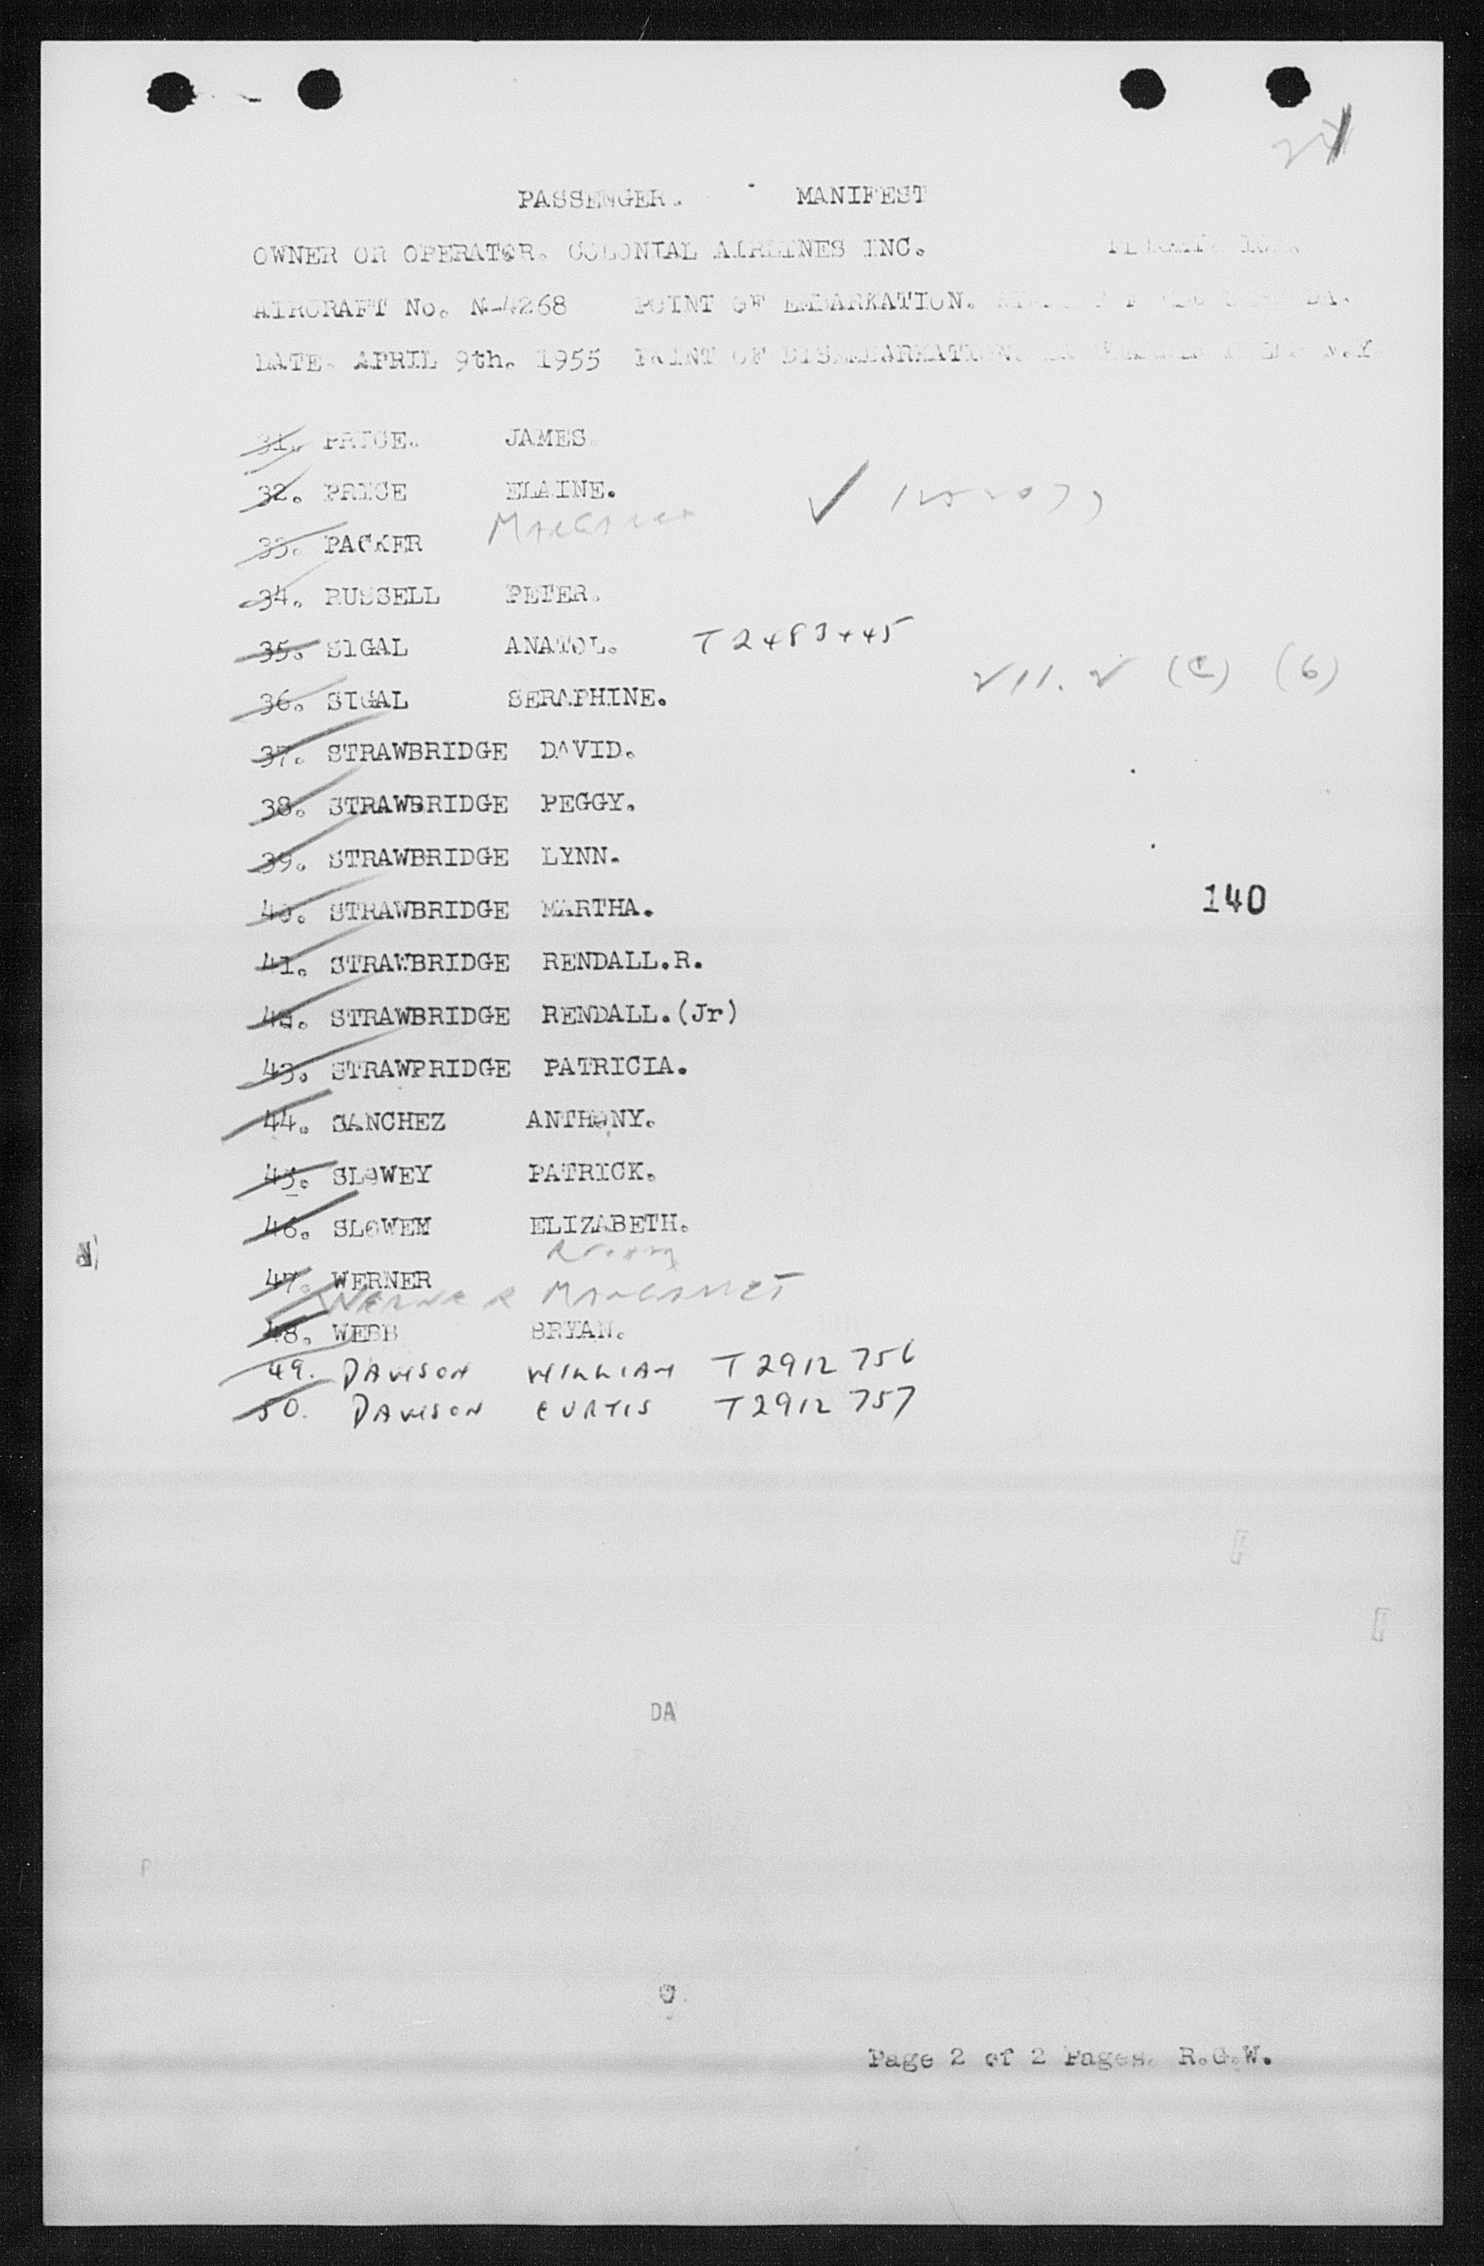 PASSENGER. MANIFEST
OWNER OR OPERATOR. COLONIAL AIRLINES INC.
AIRCRAFT No. N-4268 POINT OF EMBARKATION.
DATE. APRIL 9th. 1955 POINT OF DISEMBARKATION. N.Y
31. PRICE. JAMES.
32. PRICE ELAINE.
33. PACKER MARGARET
34. RUSSELL PETER.
35. SIGAL ANATOL. T2483445
211.2 (C) (6)
36. SIGAL SERAPHINE.
37. STRAWBRIDGE DAVID.
38. STRAWBRIDGE PEGGY.
39. STRAWBRIDGE LYNN.
40. STRAWBRIDGE MARTHA.
140
41. STRAWBRIDGE RENDALL.R.
42. STRAWBRIDGE RENDALL.(Jr)
43. STRAWPRIDGE PATRICIA.
44. SANCHEZ ANTHONY.
45. SLOWEY PATRICK.
46. SLOWEM ELIZABETH.
47. WERNER
WERNER MARGARET
48. WEBB BRYAN.
49. DAWSON WILLIAM T2912756
50. DAWSON CURTIS T2912757
DA
Page 2 of 2 Pages. R.G.W.